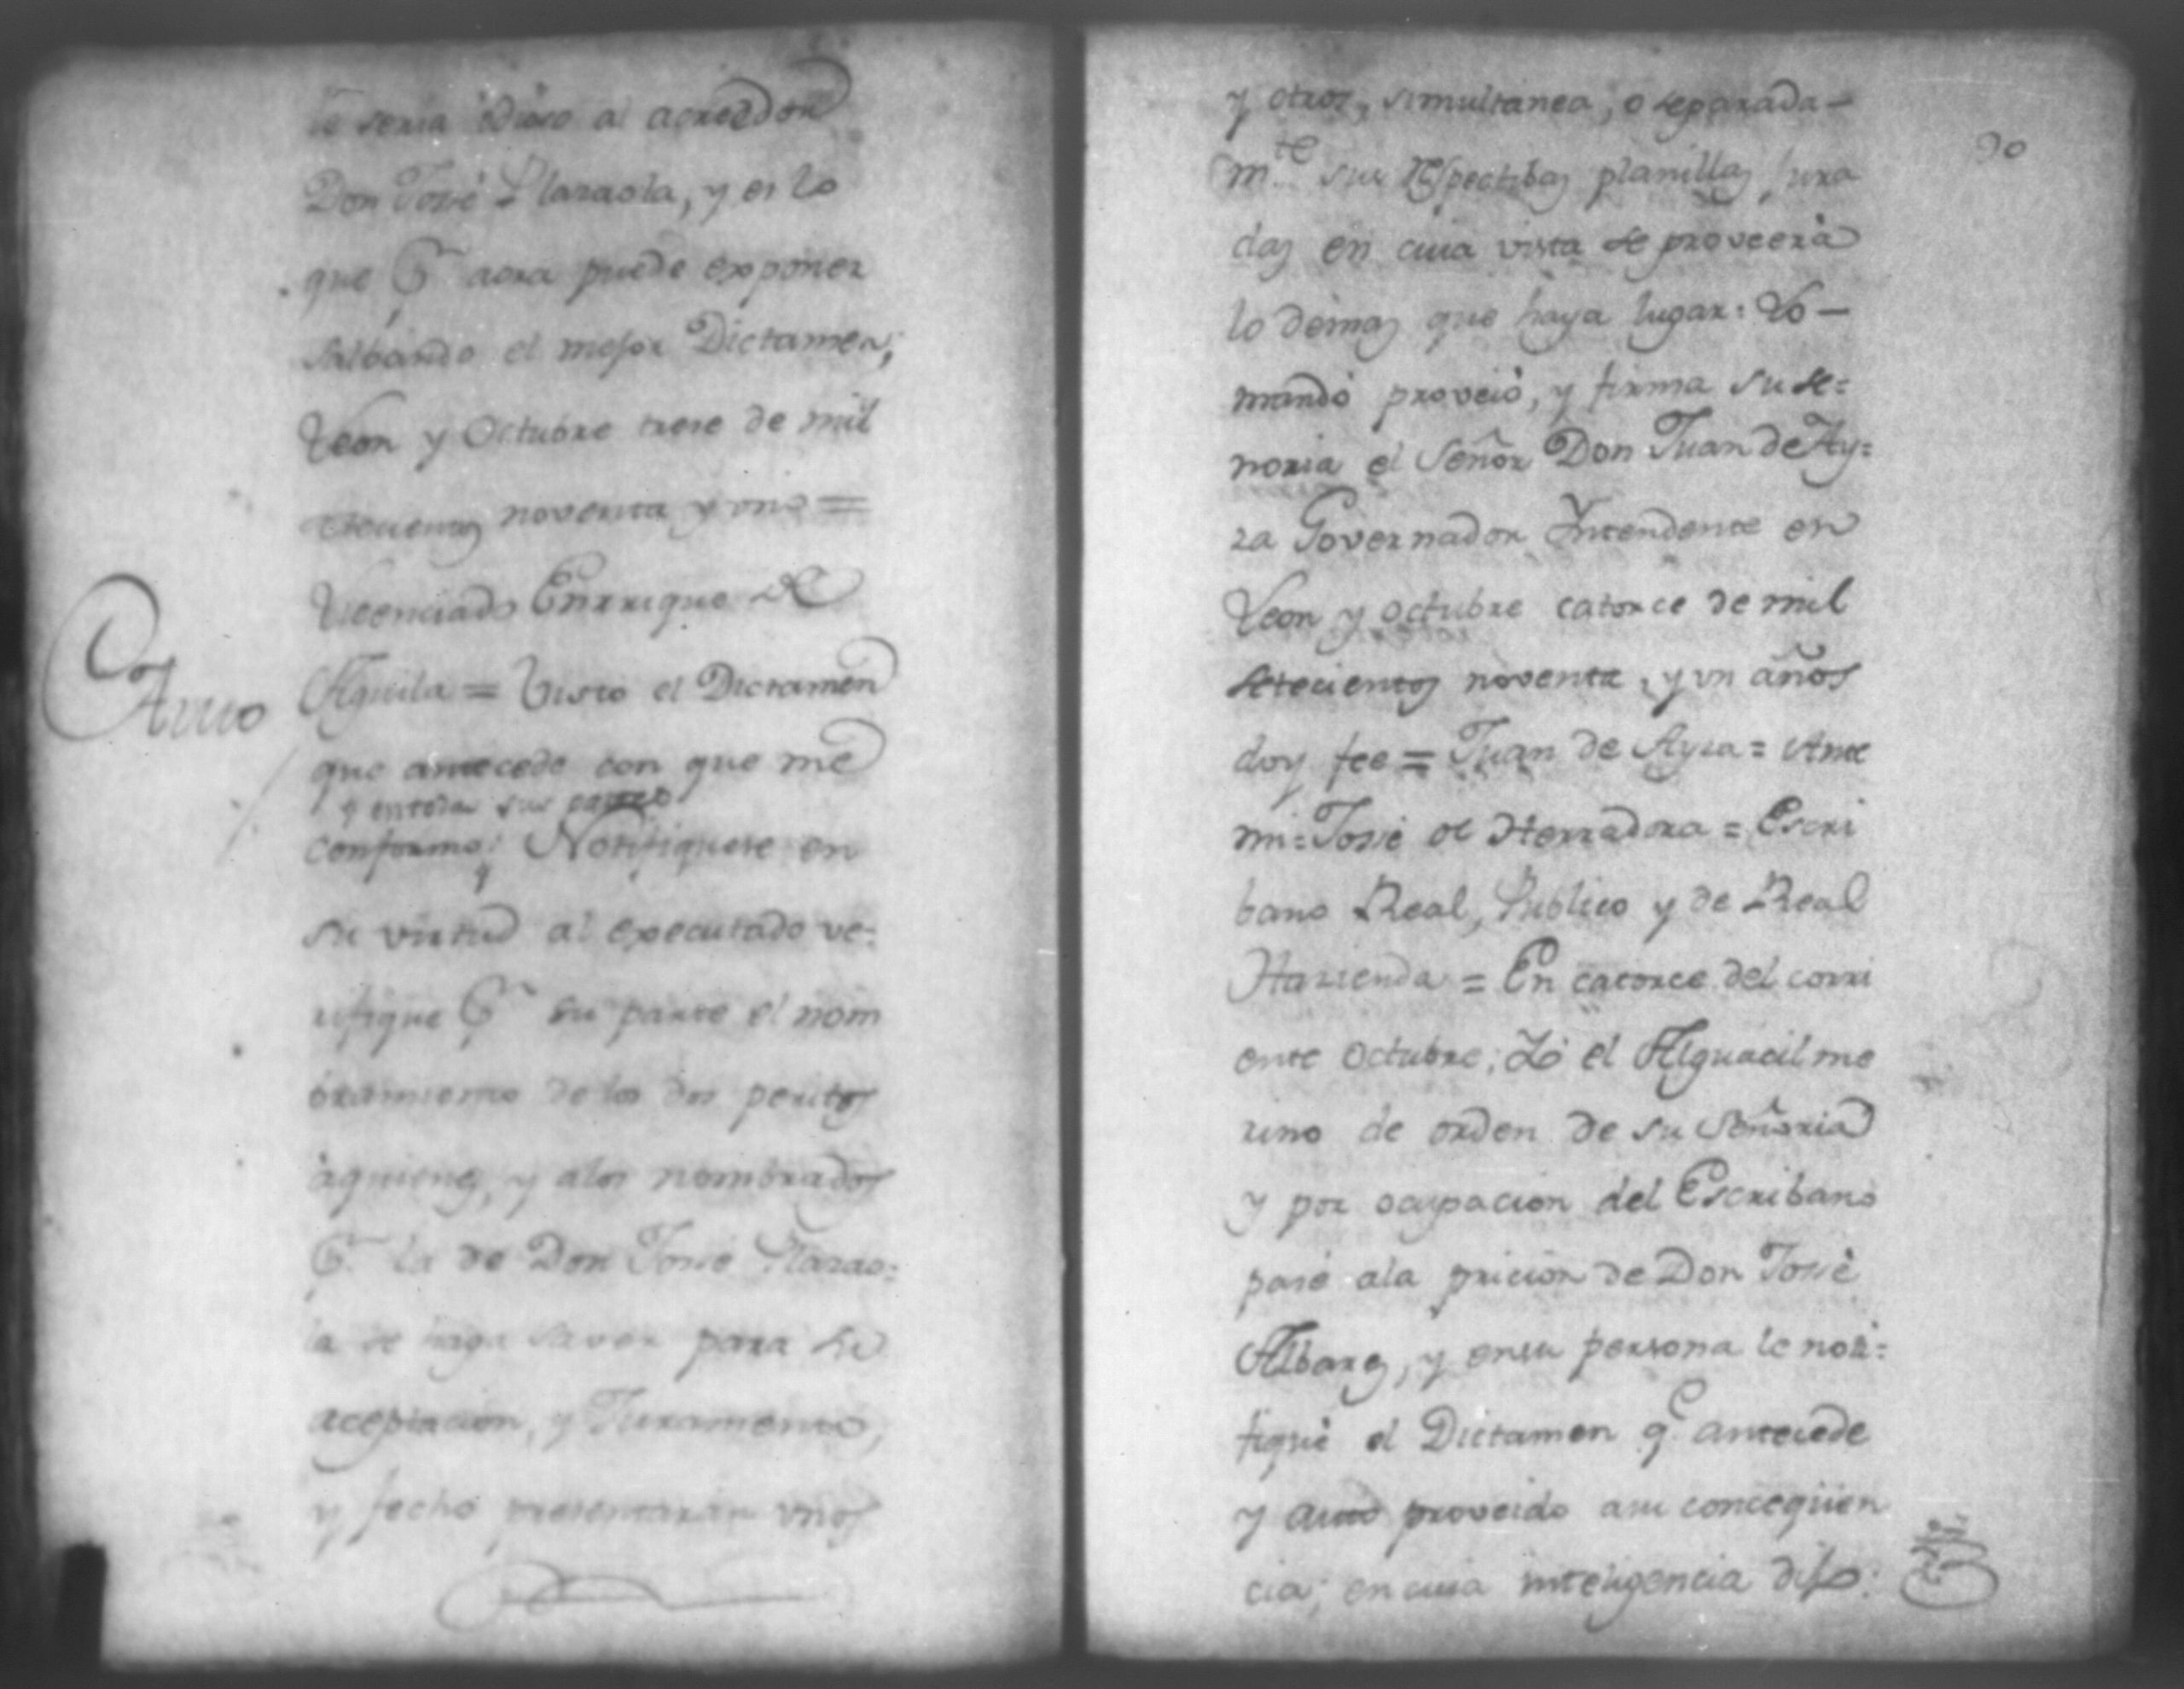 le seria odioso al acredor
Don Josè Llaraola, y es lo
que Pr aora puede exponer
salbando el mejor Dictamen;
Leon y Octubre trese de mil
setecientos noventa y uno =
Licenciado Enrrique de
Auto
Aguila = Visto el Dictamen
que antecede con que me
y entoda sus partes
conformo; Notifiquese en
su virtud al executado ve=
rifique Pr su parte el nom
bramiento de los dos peritos
àquienes, y alos nombrados
Pr la de Don Josè Llarao=
la se haga saver para su
aceptacion, y Juramento,
y fecho presentaràn unos
90
y otros, simultanea, o separada-
mte sus respectibas planillas jura
das en cuia vista se proveerà
lo demas que haya lugar: Lo-
mandò proveiò, y firma su se=
noria el Señor Don Juan de Ay=
za Governador Intendente en
Leon y Octubre catorce de mil
setecientos noventa, y un años
doy fee = Juan de Ayza = Ante
mi = Josè de Herradora = Escri
bano Real, Publico y de Real
Hazienda = En catorce del corri
ente Octubre; Yò el Alguacil me
rino de orden de su Señoria
y por ocupacion del Escribano
pasè ala pricion de Don Josè
Albares, y ensu persona le noti=
fiquè el Dictamen qe antecede
y auto proveido asu concequen
cia; en cuia inteligencia dijo: